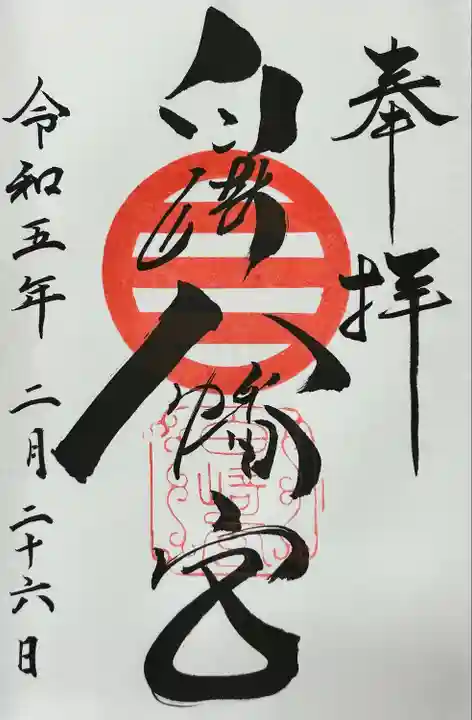 奉拝
白崎八幡宮
令和五年 二月 二十六日